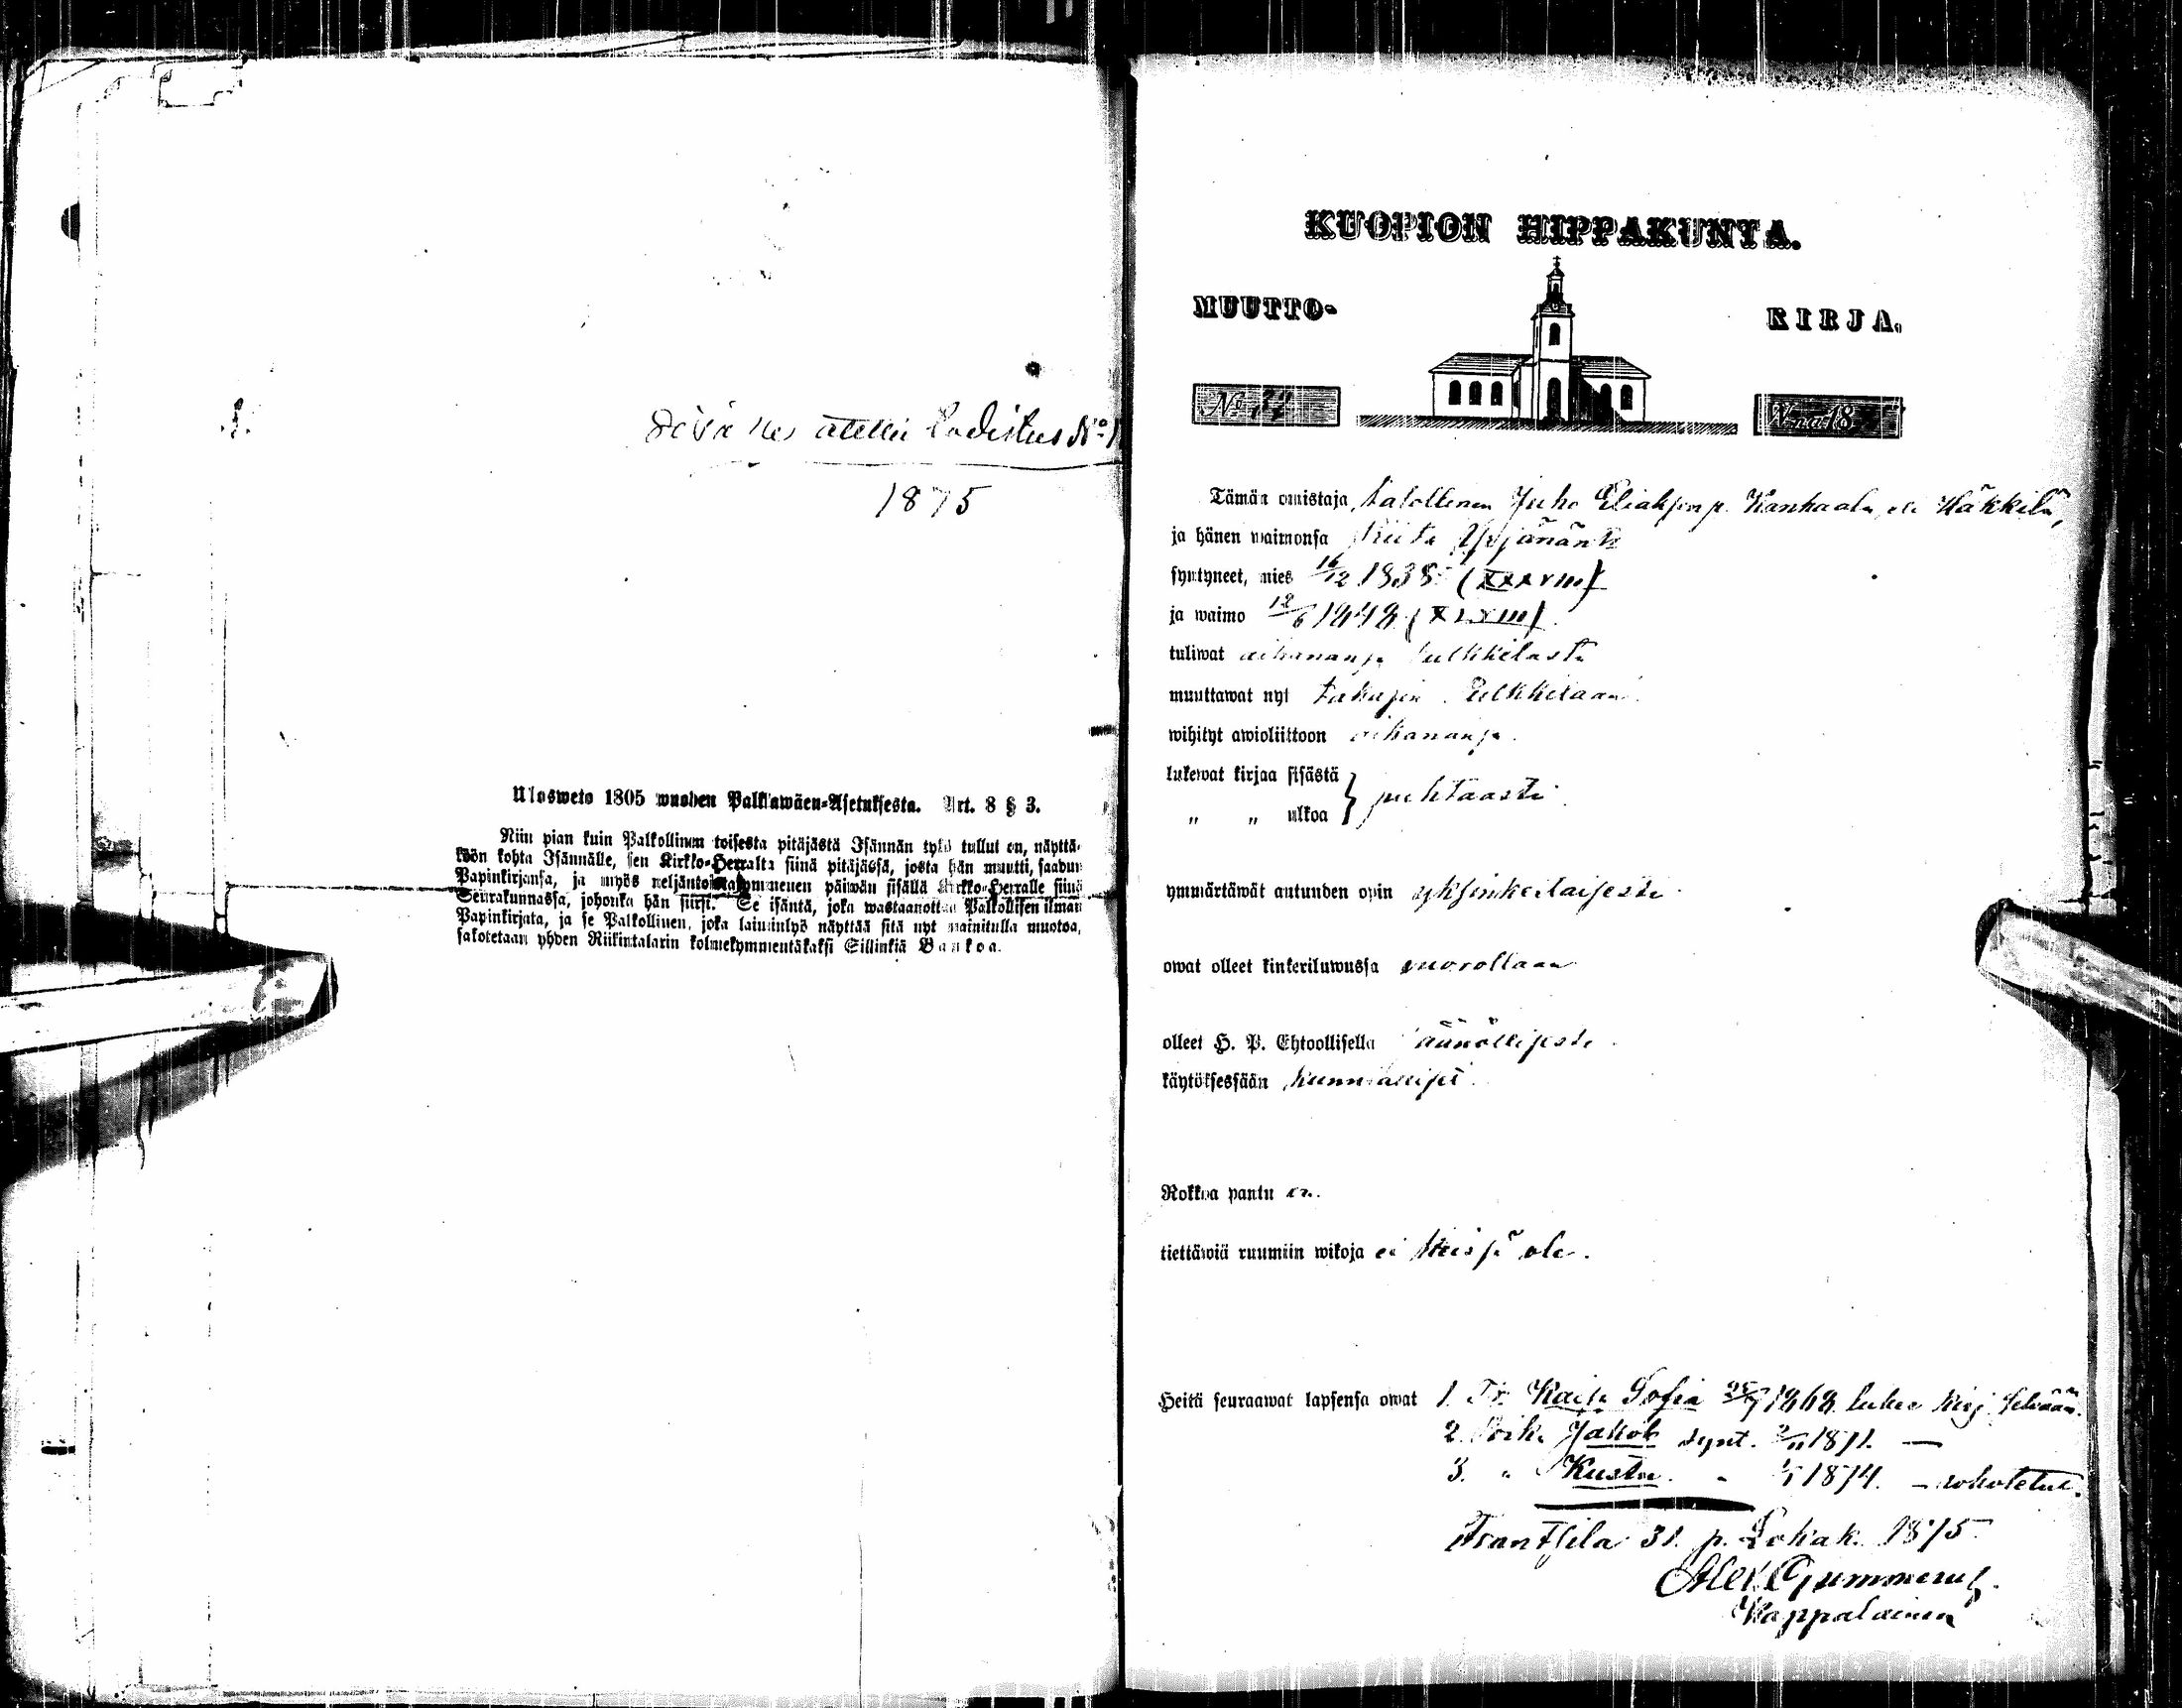 1875
Ulosweto 1805 wuoden Palkkawäen-Asetuksesta. Art. 8 § 3.
Niin pian kuin Palkollinen toisesta pitäjästä Isännän tykö tullut on, näyttä-
köön kohta Isännälle, sen Kirkko-Herralta siinä pitäjässä, josta hän muutti, saadun
Papinkirjansa, ja myös neljäntoistakymmenen päiwän sisällä Kirkko-Herralle siinä
Seurakunnassa, johonka hän siirsi. Se isäntä, joka wastaanottaa Palkollisen ilman
Papinkirjata, ja se Palkollinen, joka laiminlyö näyttää sitä nyt mainitulla muotoa,
sakotetaan yhden Riikintalarin kolmekymmentäkaksi Sillinkiä Bankoa.
KUOPION HIPPAKUNTA.
MUUTTO-
KIRJA.
No 32
W:na 18
Tämän omistaja Juho Eliakson p. Kankaala, Häkkilä,
ja hänen waimonsa
syntyneet, mies 16/12 1838 (XXXVIII)
ja waimo 12/6 1848 (XLVIII)
tuliwat aikananza Pulkkilasta
muuttawat nyt takasin Pulkkilaan
wihityt awioliittoon aikananza.
lukewat kirjaa sisästä } puhtaasti
" " ulkoa
ymmärtäwät autunden opin yksinkertaisesti
owat olleet kinkeriluwussa vuorollaan
olleet H. P. Ehtoollisella säännöllisesti.
käytöksessään kunnialliset.
Rokkoa pantu on.
tiettäwiä ruumiin wikoja ei heissä ole.
Heitä seuraawat lapsensa owat 1. Tr. Kaisa Sofia 1868 lukee kirj. selvään.
2. Poika Jakob synt. 2/11 1871. —
3. " Kusta " 1874. — rokotetut.
Frantsila 31. p. Lokak. 1875
Alex Gummerus.
Kappalainen